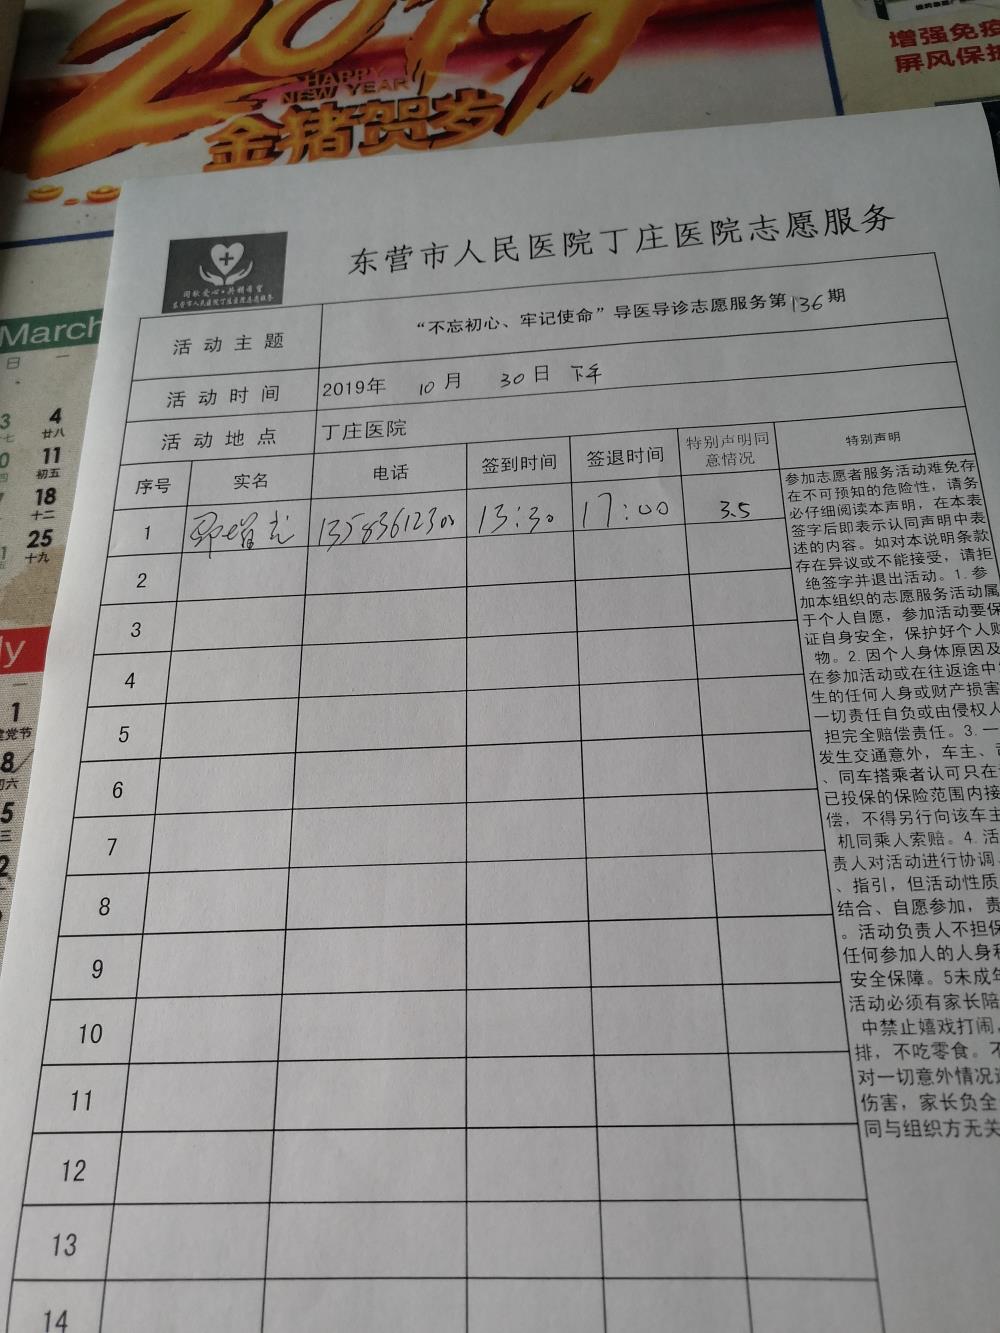 2019
HAPPY
NEW YEAR
金猪贺岁
增强免疫
屏风保护
March
日 一
3 4
廿八
11
初五
18
十二
25
十九
ly
一
1
建党节
8
初六
东营市人民医院丁庄医院志愿服务
东营市人民医院丁庄医院志愿服务
活动主题 “不忘初心、牢记使命”导医导诊志愿服务第136期
活动时间 2019年 10月 30日 下午
活动地点 丁庄医院
序号 实名 电话 签到时间 签退时间 特别声明同意情况 特别声明
1 13583612300 13:30 17:00 3.5
2
3
4
5
6
7
8
9
10
11
12
13
14
参加志愿者服务活动难免存
在不可预知的危险性，请务
必仔细阅读本声明，在本表
签字后即表示认同声明中表
述的内容。如对本说明条款
存在异议或不能接受，请拒
绝签字并退出活动。1.参
加本组织的志愿服务活动属
于个人自愿，参加活动要保
证自身安全，保护好个人财
物。2.因个人身体原因及
在参加活动或在往返途中
生的任何人身或财产损害
一切责任自负或由侵权人
担完全赔偿责任。3.一
发生交通意外，车主、
、同车搭乘者认可只在
已投保的保险范围内接
偿，不得另行向该车主
机同乘人索赔。4.活
责人对活动进行协调、
、指引，但活动性质
结合、自愿参加，责
。活动负责人不担保
任何参加人的人身和
安全保障。5未成年
活动必须有家长陪
中禁止嬉戏打闹，
排，不吃零食。不
对一切意外情况
伤害，家长负全
同与组织方无关